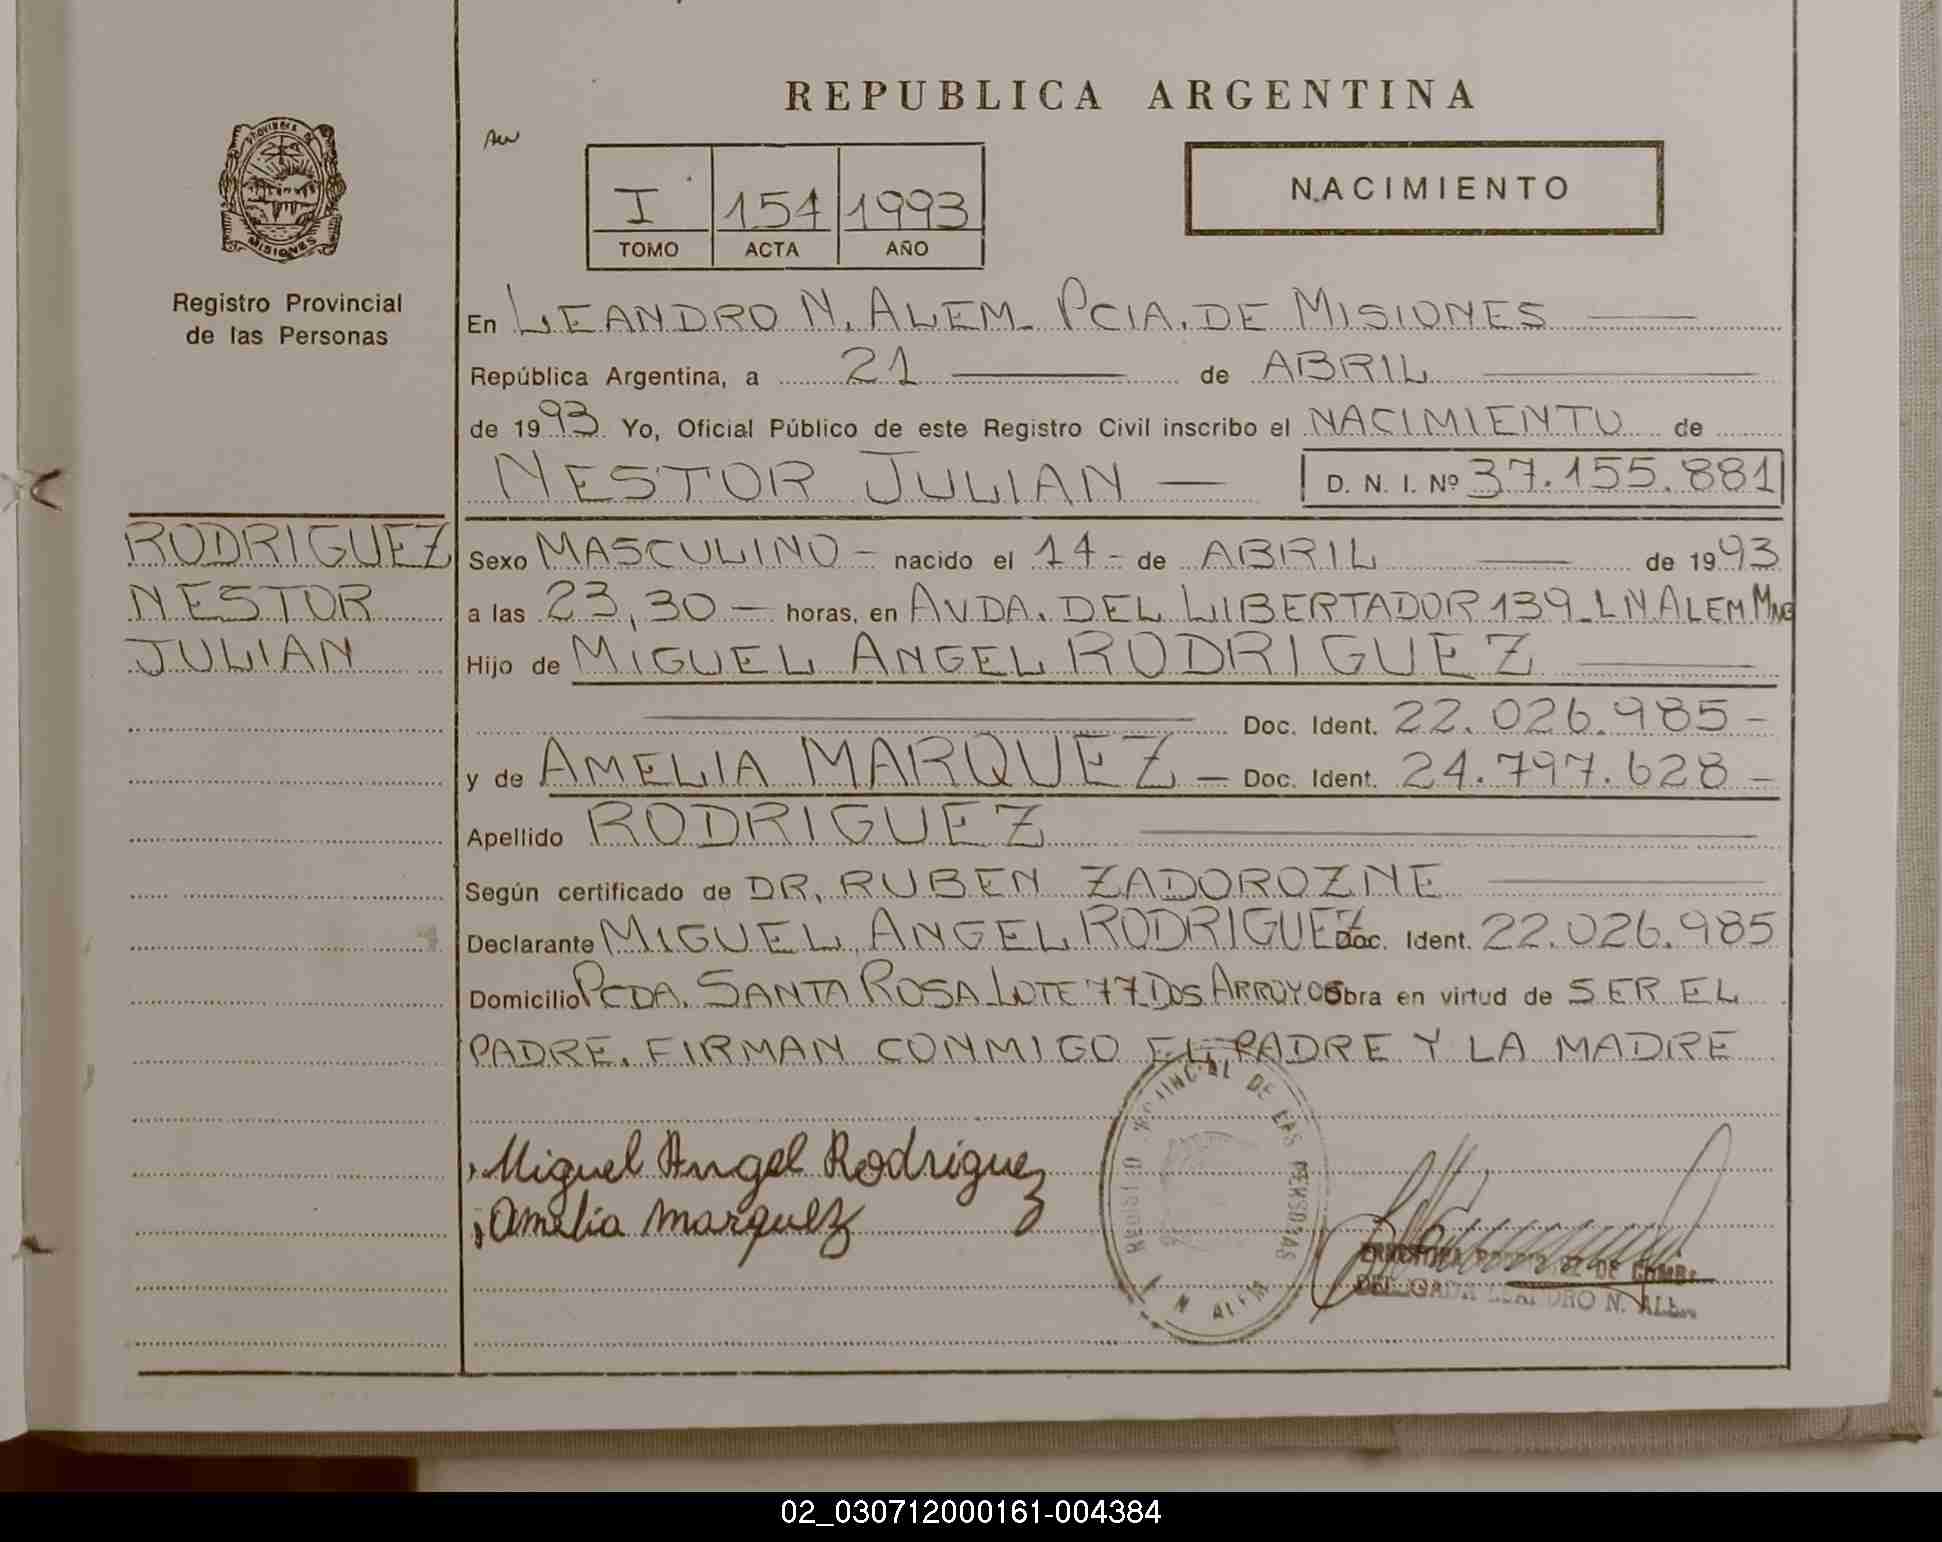 REPUBLICA ARGENTINA
NACIMIENTO
I 154 1993
TOMO ACTA AÑO
PROVINCIA DE
MISIONES
Registro Provincial
de las Personas
En LEANDRO N. ALEM PCIA. DE MISIONES
República Argentina, a 21 de ABRIL
de 1993 Yo, Oficial Público de este Registro Civil inscribo el NACIMIENTO de
NESTOR JULIAN D. N. I. Nº 37.155.881
RODRIGUEZ
NESTOR
JULIAN
Sexo MASCULINO - nacido el 14 - de ABRIL de 1993
a las 23,30 - horas, en AVDA. DEL LIBERTADOR 139 L N ALEM Mnes
Hijo de MIGUEL ANGEL RODRIGUEZ
Doc. Ident. 22.026.985 -
y de AMELIA MARQUEZ - Doc. Ident. 24.797.628 -
Apellido RODRIGUEZ
Según certificado de DR. RUBEN ZADOROZNE
Declarante MIGUEL ANGEL RODRIGUEZ Doc. Ident. 22.026.985
Domicilio PCDA. SANTA ROSA LOTE 77 DOS ARROYOS Obra en virtud de SER EL
PADRE. FIRMAN CONMIGO EL PADRE Y LA MADRE
Miguel Angel Rodriguez
Amelia Marquez
REGISTRO PROVINCIAL DE LAS PERSONAS
L N ALEM
DE
LEANDRO N. ALEM
02_030712000161-004384